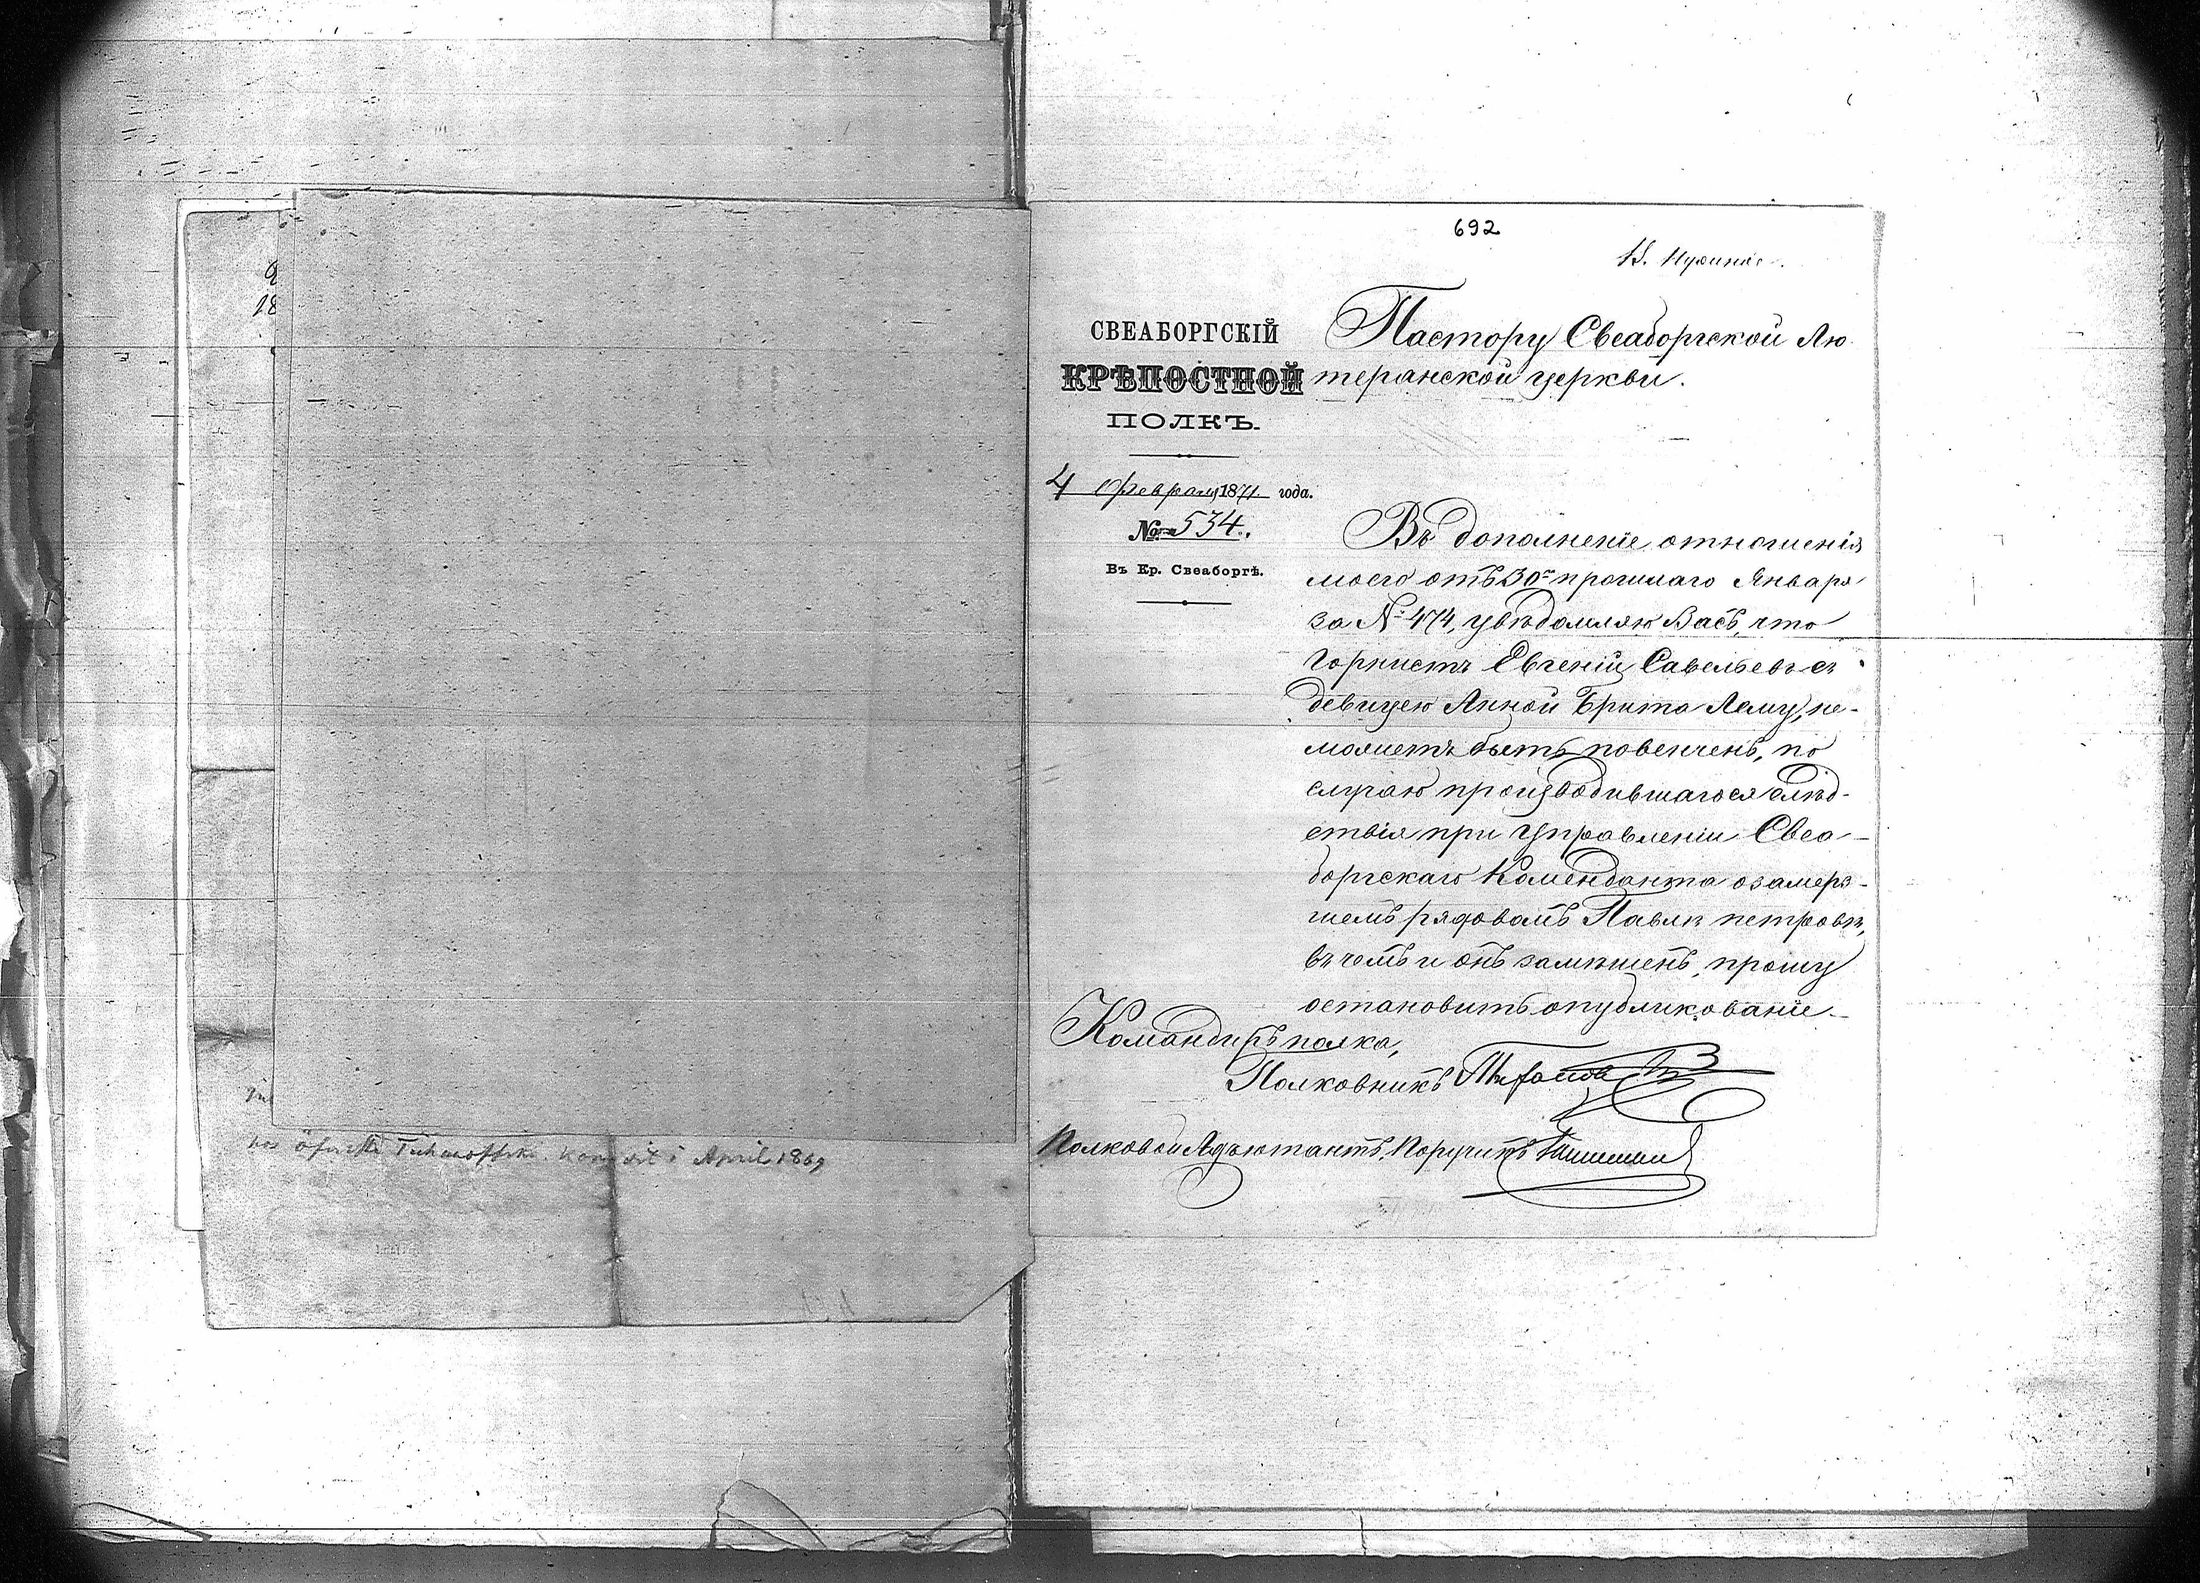 692
СВЕАБОРГСКІЙ
КРѢПОСТНОЙ
ПОЛКЪ.
4 Февраля 1871 года.
№ 534.
Въ Кр. Свеаборгѣ.
Пастору Свеаборгской Лю
теранской церкви.
Въ дополненіе отношенія
моего отъ 30го прошлаго Января
за № 474, увѣдомляю Васъ, что
Горнистъ Евгеній Савельевъ съ
девицею Анной Брита Лему, не-
можетъ быть повенченъ, по
случаю производившагося слѣд-
ствія при Управленіи Свеа-
боргскаго Коменданта о замерз-
шемъ рядовомъ Павлѣ Петровѣ,
въ чемъ и онъ замѣшенъ, прошу
остановить опубликованіе
Командиръ полка,
Полковникъ
Полковой Адъютантъ, Поручикъ
öfver April 1869